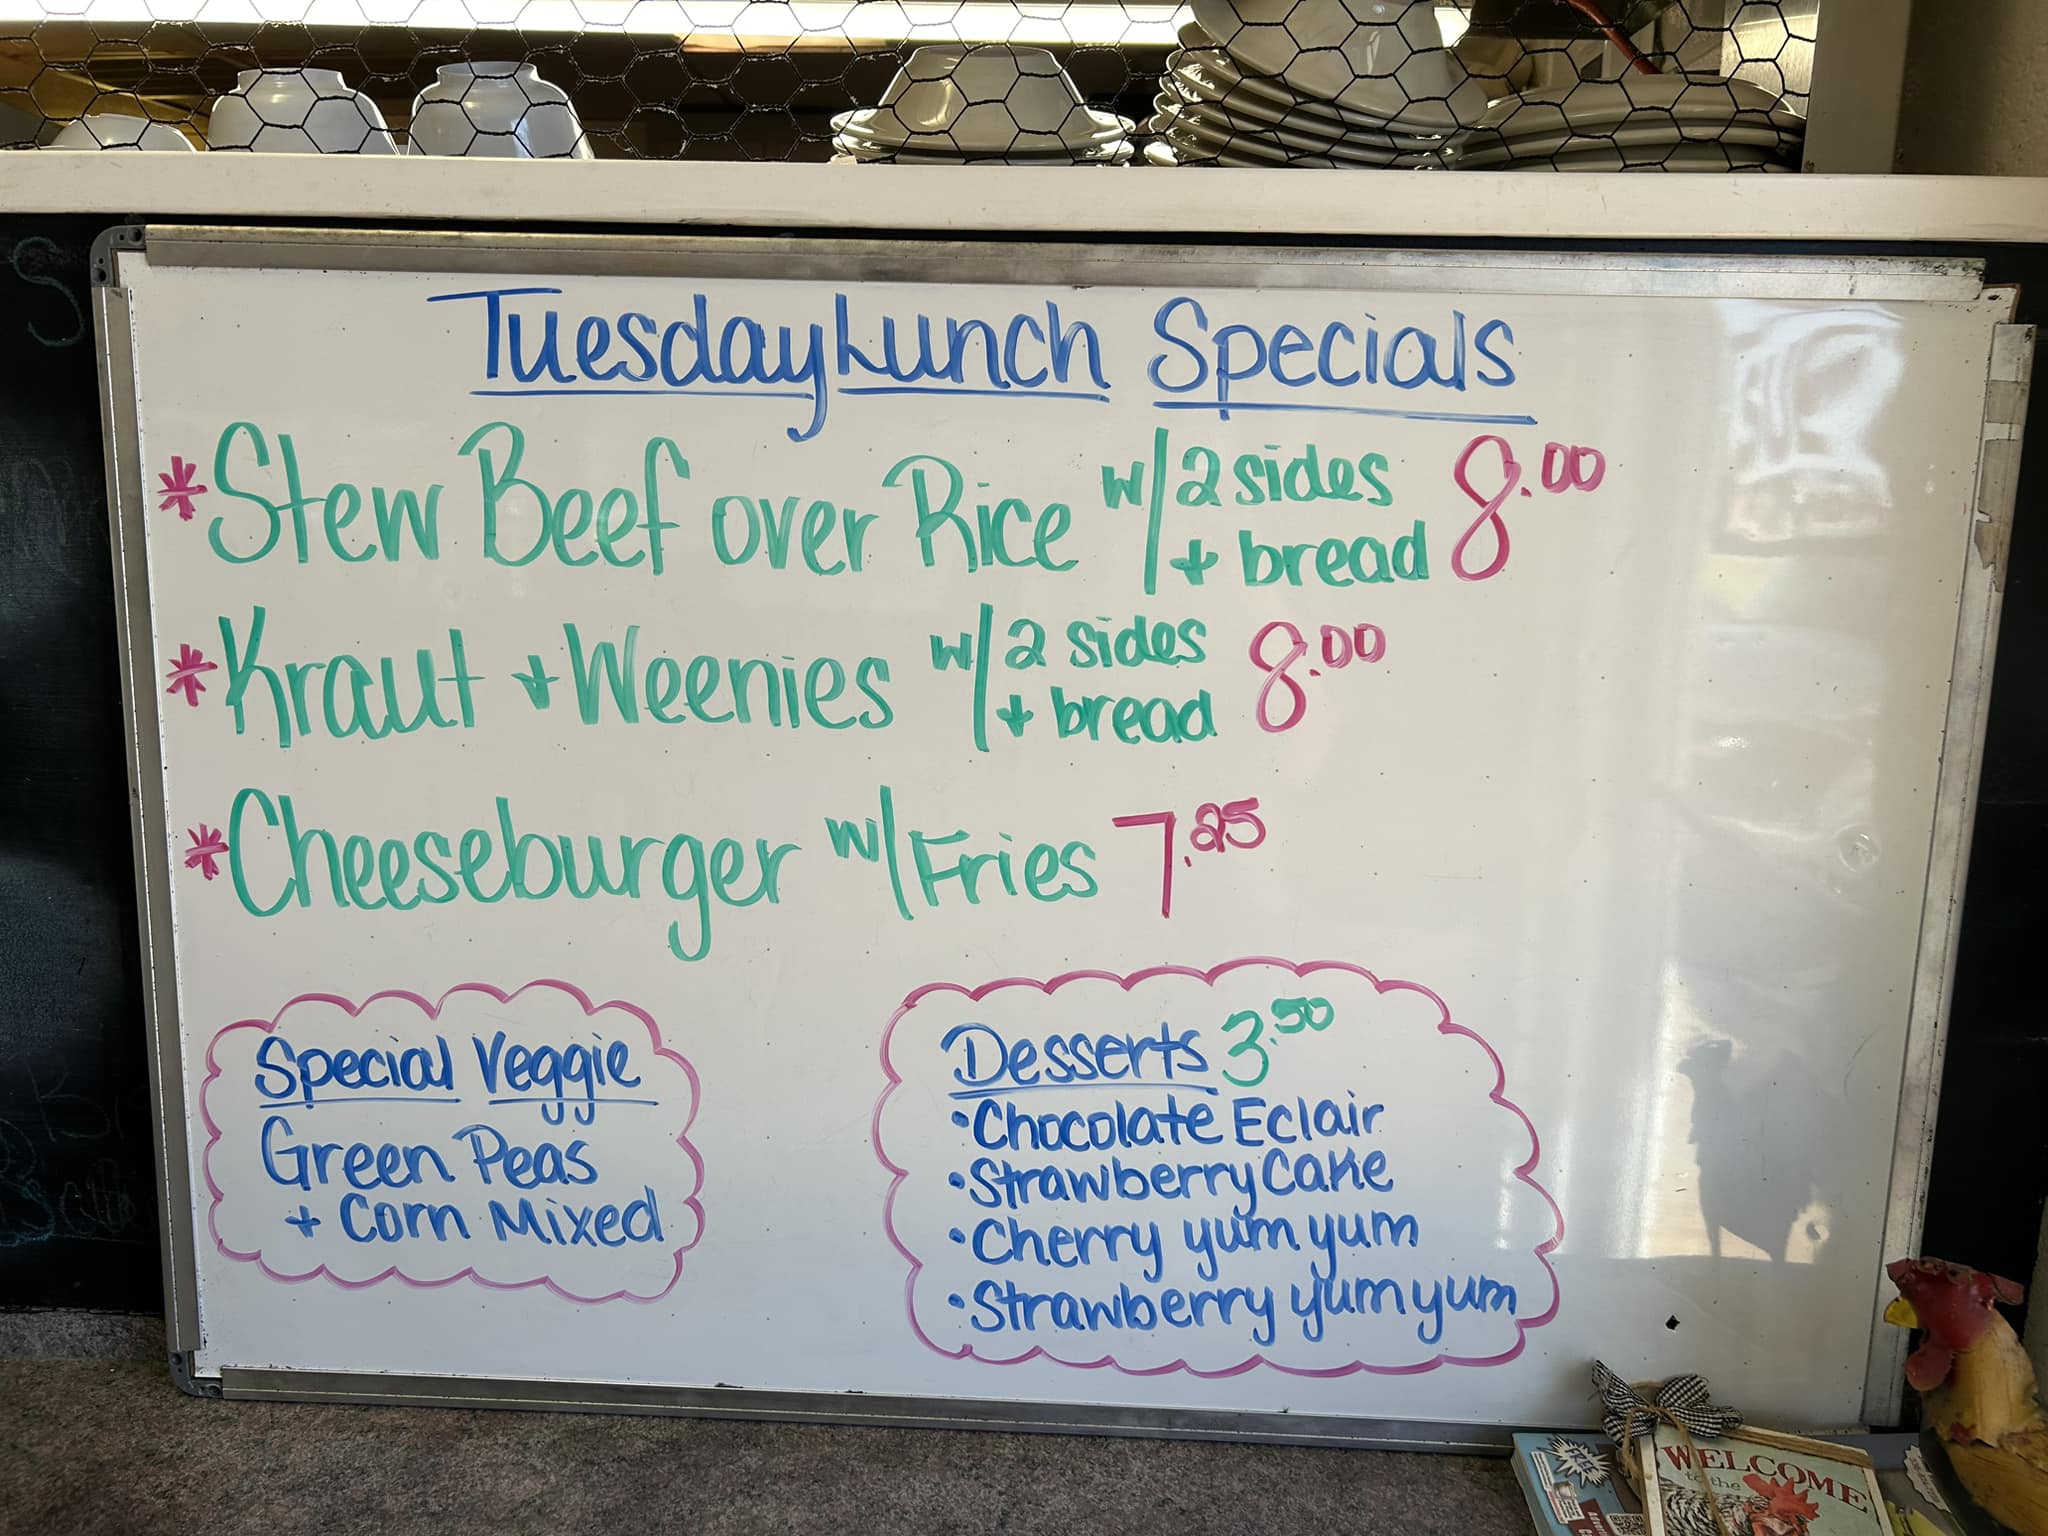 Tuesday Lunch Specials
*Stew Beef over Rice w/2 sides + bread 8.00
*Kraut + Weenies w/2 sides + bread 8.00
*Cheeseburger w/Fries 7.25
Special Veggie
Green Peas
+ Corn Mixed
Desserts 3.50
•Chocolate Eclair
•Strawberry Cake
•Cherry yum yum
•Strawberry yum yum
FREE
WELCOME
to the